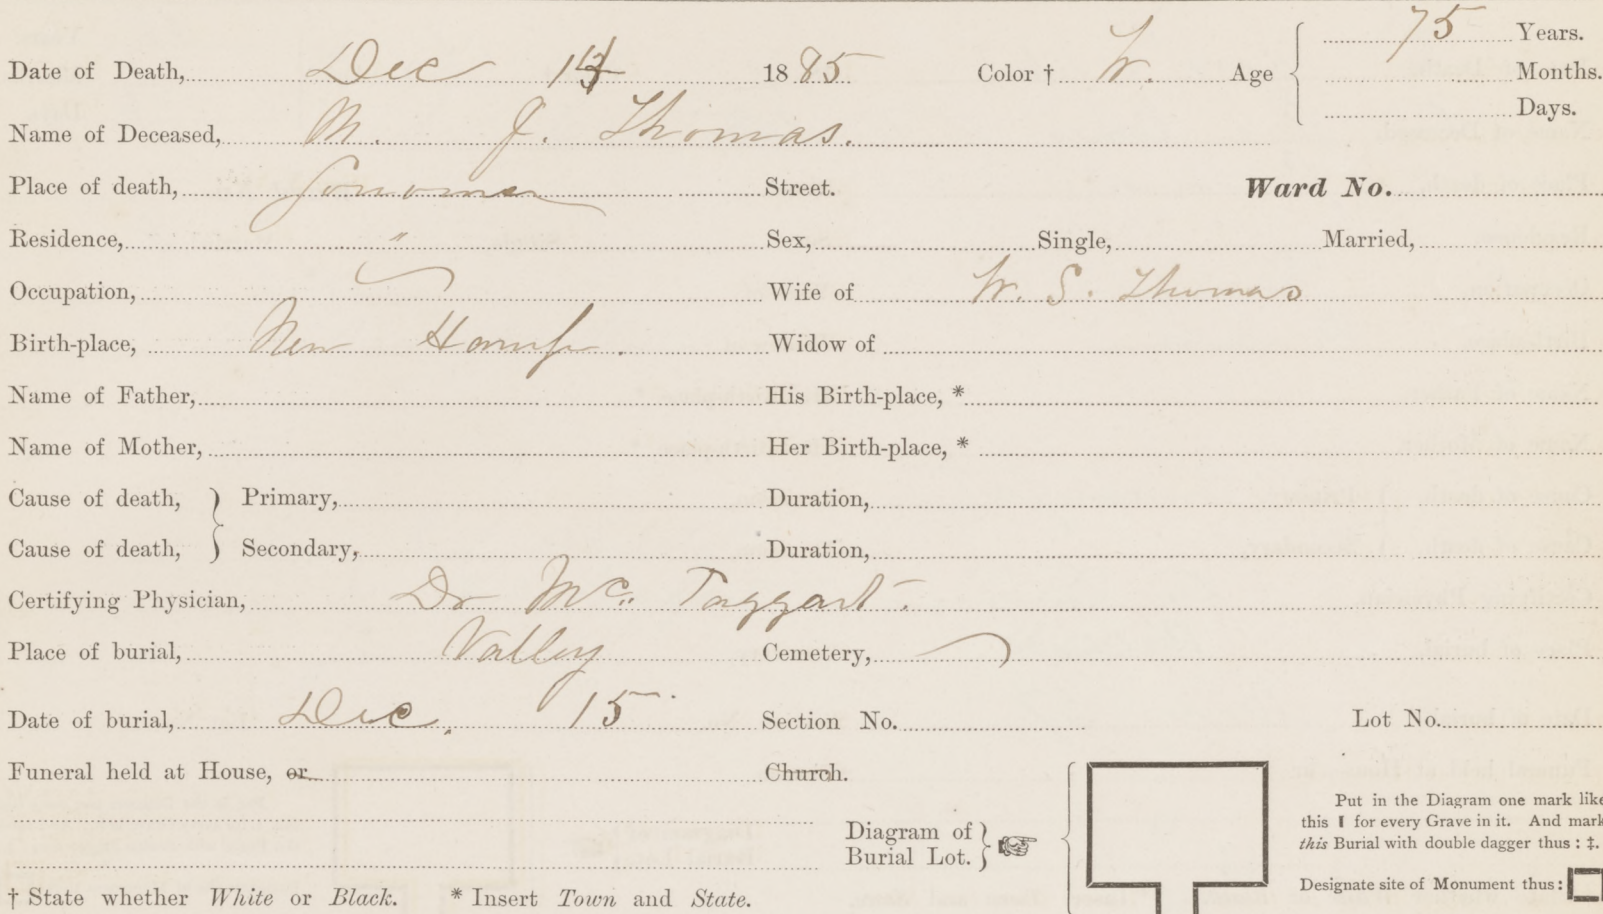 Date of Death, Dec 14 1885 Color † W. Age 75 Years.
Months.
Days.
Name of Deceased, M. J. Thomas.
Place of death, Sonoma Street. Ward No.
Residence, " Sex, Single, Married,
Occupation, Wife of W. S. Thomas
Birth-place, New Hamp. Widow of
Name of Father, His Birth-place, *
Name of Mother, Her Birth-place, *
Cause of death, } Primary, Duration,
Cause of death, } Secondary, Duration,
Certifying Physician, Dr Mc. Taggart.
Place of burial, Valley Cemetery,
Date of burial, Dec. 15 Section No. Lot No.
Funeral held at House, or Church.
Put in the Diagram one mark like
this I for every Grave in it. And mark
this Burial with double dagger thus : ‡.
Diagram of
Burial Lot. }
Designate site of Monument thus:
† State whether White or Black. * Insert Town and State.